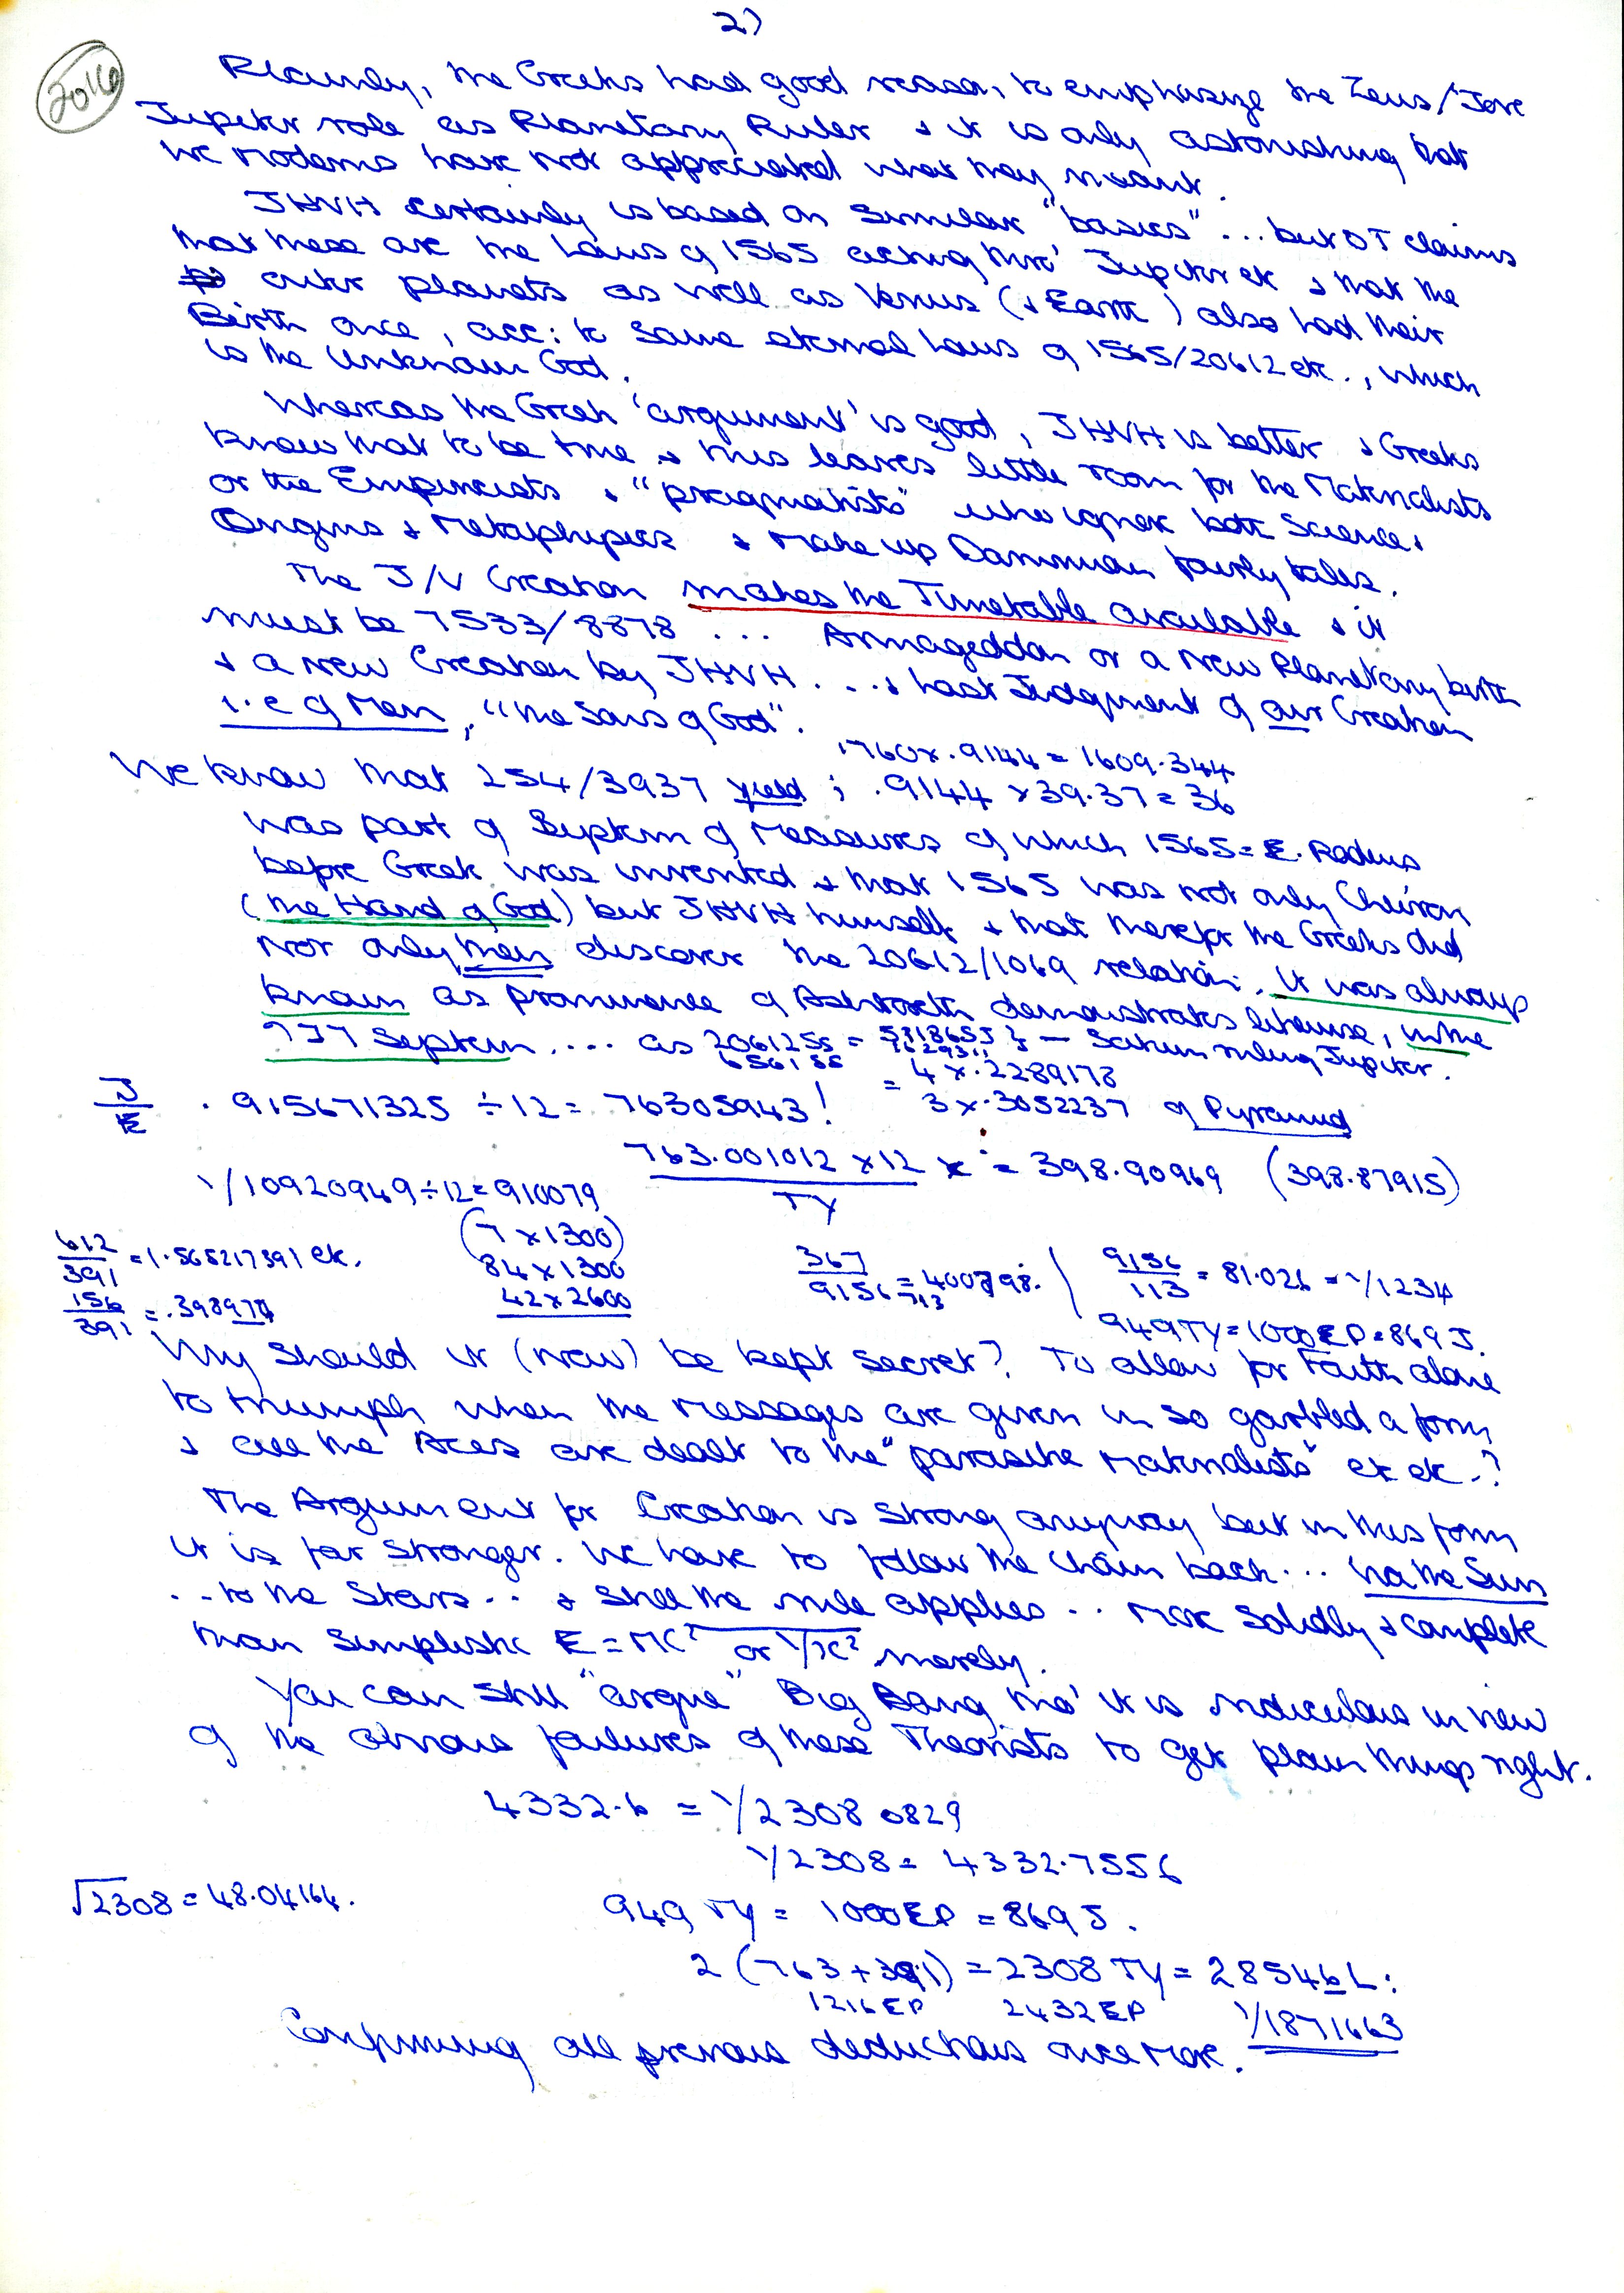 2)
Plainly, the Greeks had good reason, to emphasize the Zeus/Jove
Jupiter role as Planetary Ruler & it is only astonishing that
we moderns have not appreciated what they meant.
JHVH certainly is based on similar "basics" ... but OT claims
that these are the Laws of 1565 acting thro' Jupiter etc & that the
outer planets as well as Venus (& Earth) also had their
Birth once, acc: to same eternal Laws of 1565/20612 etc., which
is the Unknown God.
Whereas the Greek 'argument' is good, JHVH is better & Greeks
knew that to be true & this leaves little room for the Materialists
or the Empiricists & "pragmatists" who ignore both Science &
Origins & Metaphysics & make up Darwinian fairy tales.
The J/V Creation makes the Timetable available & it
must be 7533/8878 ... Armageddon or a new Planetary birth
& a new Creation by JHVH ... & Last Judgment of our Creation
i.e of Man, "the Sons of God".
1760 x .9144 = 1609.344
We know that 254/3937 yield ; .9144 x 39.37 = 36
was part of System of Measures of which 1565 = E. Radius
before Greek was invented & that 1565 was not only Cheiron
(the Hand of God) but JHVH himself & that therefor the Greeks did
not only then discover the 20612/1069 relation. It was always
known as prominence of Ashtoreth demonstrates likewise, in the
777 System .... as 206125s = 531865J } - Saturn ruling Jupiter.
656155
= 4 x .2289178
3 x .3052237 of Pyramid
J/E . 915671325 ÷ 12 = 76305943!
763.001012 x 12 x = 398.90969 (398.87915)
TY
1/10920949 ÷ 12 = 910079
(7 x 1300)
84 x 1300
42 x 2600
612/391 = 1.565217391 etc.
156/391 = .398974
367
9156 = 400798.
713
9156/113 = 81.026 = 1/1234
949 TY = 1000 EP = 869 J.
Why should it (now) be kept secret? To allow for Faith alone
to triumph when the messages are given in so garbled a form
& all the Aces are dealt to the "parasite materialists" etc etc.?
The Argument for Creation is strong anyway but in this form
it is far stronger. We have to follow the chain back ... via the Sun
.. to the Stars .. & still the rule applies .. more solidly & complete
than simplistic E = MC² or 1/x² merely.
You can still "argue" Big Bang tho' it is ridiculous in view
of the obvious failures of these Theorists to get plain things right.
4332.6 = 1/2308 0829
1/2308 = 4332.7556
√2308 = 48.04164.
949 TY = 1000 EP = 869 J.
2 (763 + 391) = 2308 TY = 28546 L:
1216 EP 2432 EP 1/1871663
Confirming all previous deductions once more.